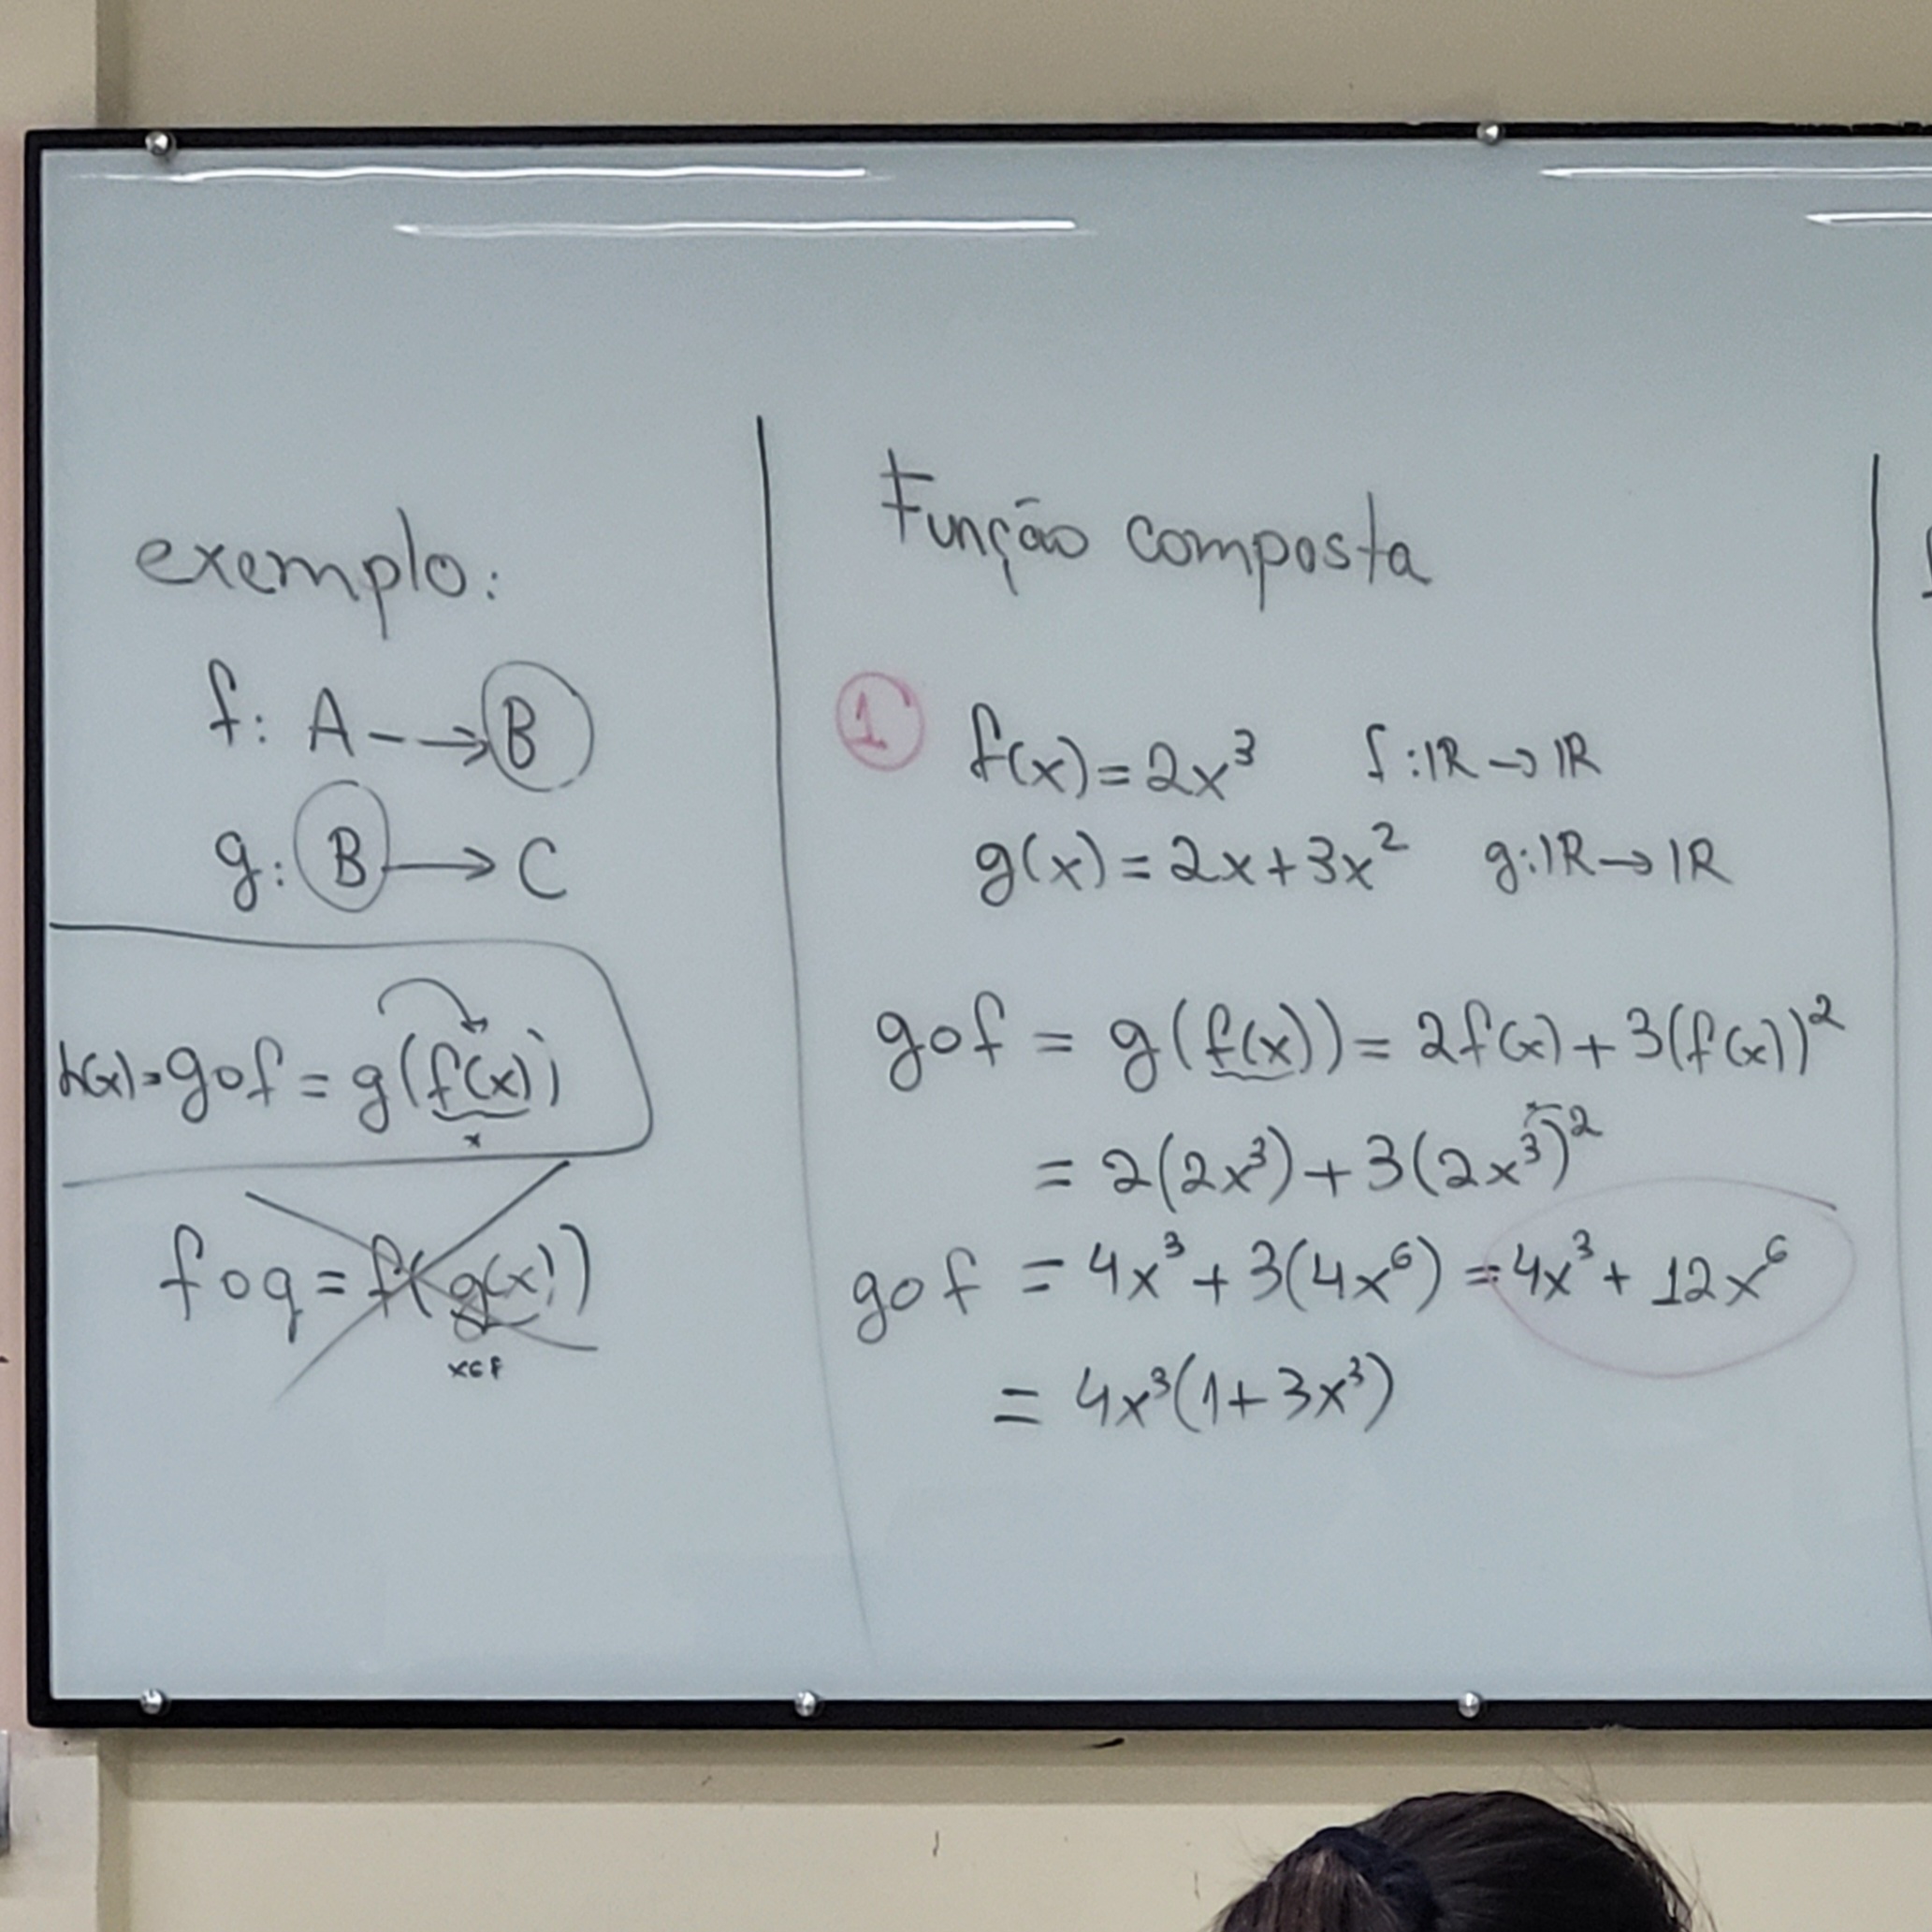 exemplo:
f: A --→ B
g: B → C
h(x) = gof = g(f(x))
x
fog = f(g(x))
Função composta
1
f(x) = 2x³ f: IR → IR
g(x) = 2x + 3x² g: IR → IR
gof = g(f(x)) = 2f(x) + 3(f(x))²
= 2(2x³) + 3(2x³)²
gof = 4x³ + 3(4x⁶) = 4x³ + 12x⁶
= 4x³(1 + 3x³)